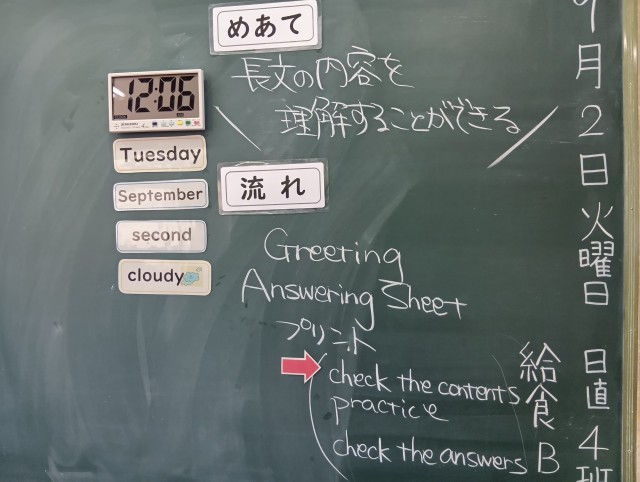 めあて
長文の内容を
理解することができる
12:06
Tuesday
September
second
cloudy
流れ
Greeting
Answering Sheet
プリント
check the contents
practice
check the answers
9月2日火曜日
日直4班
給食B